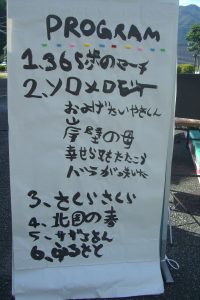 PROGRAM
1.365歩のマーチ
2.ソロメロディー
およげたいやきくん
岸壁の母
幸せなら手をたたこう
バラが咲いた
3、さくらさくら
4、北国の春
5、サザエさん
6、ふるさと